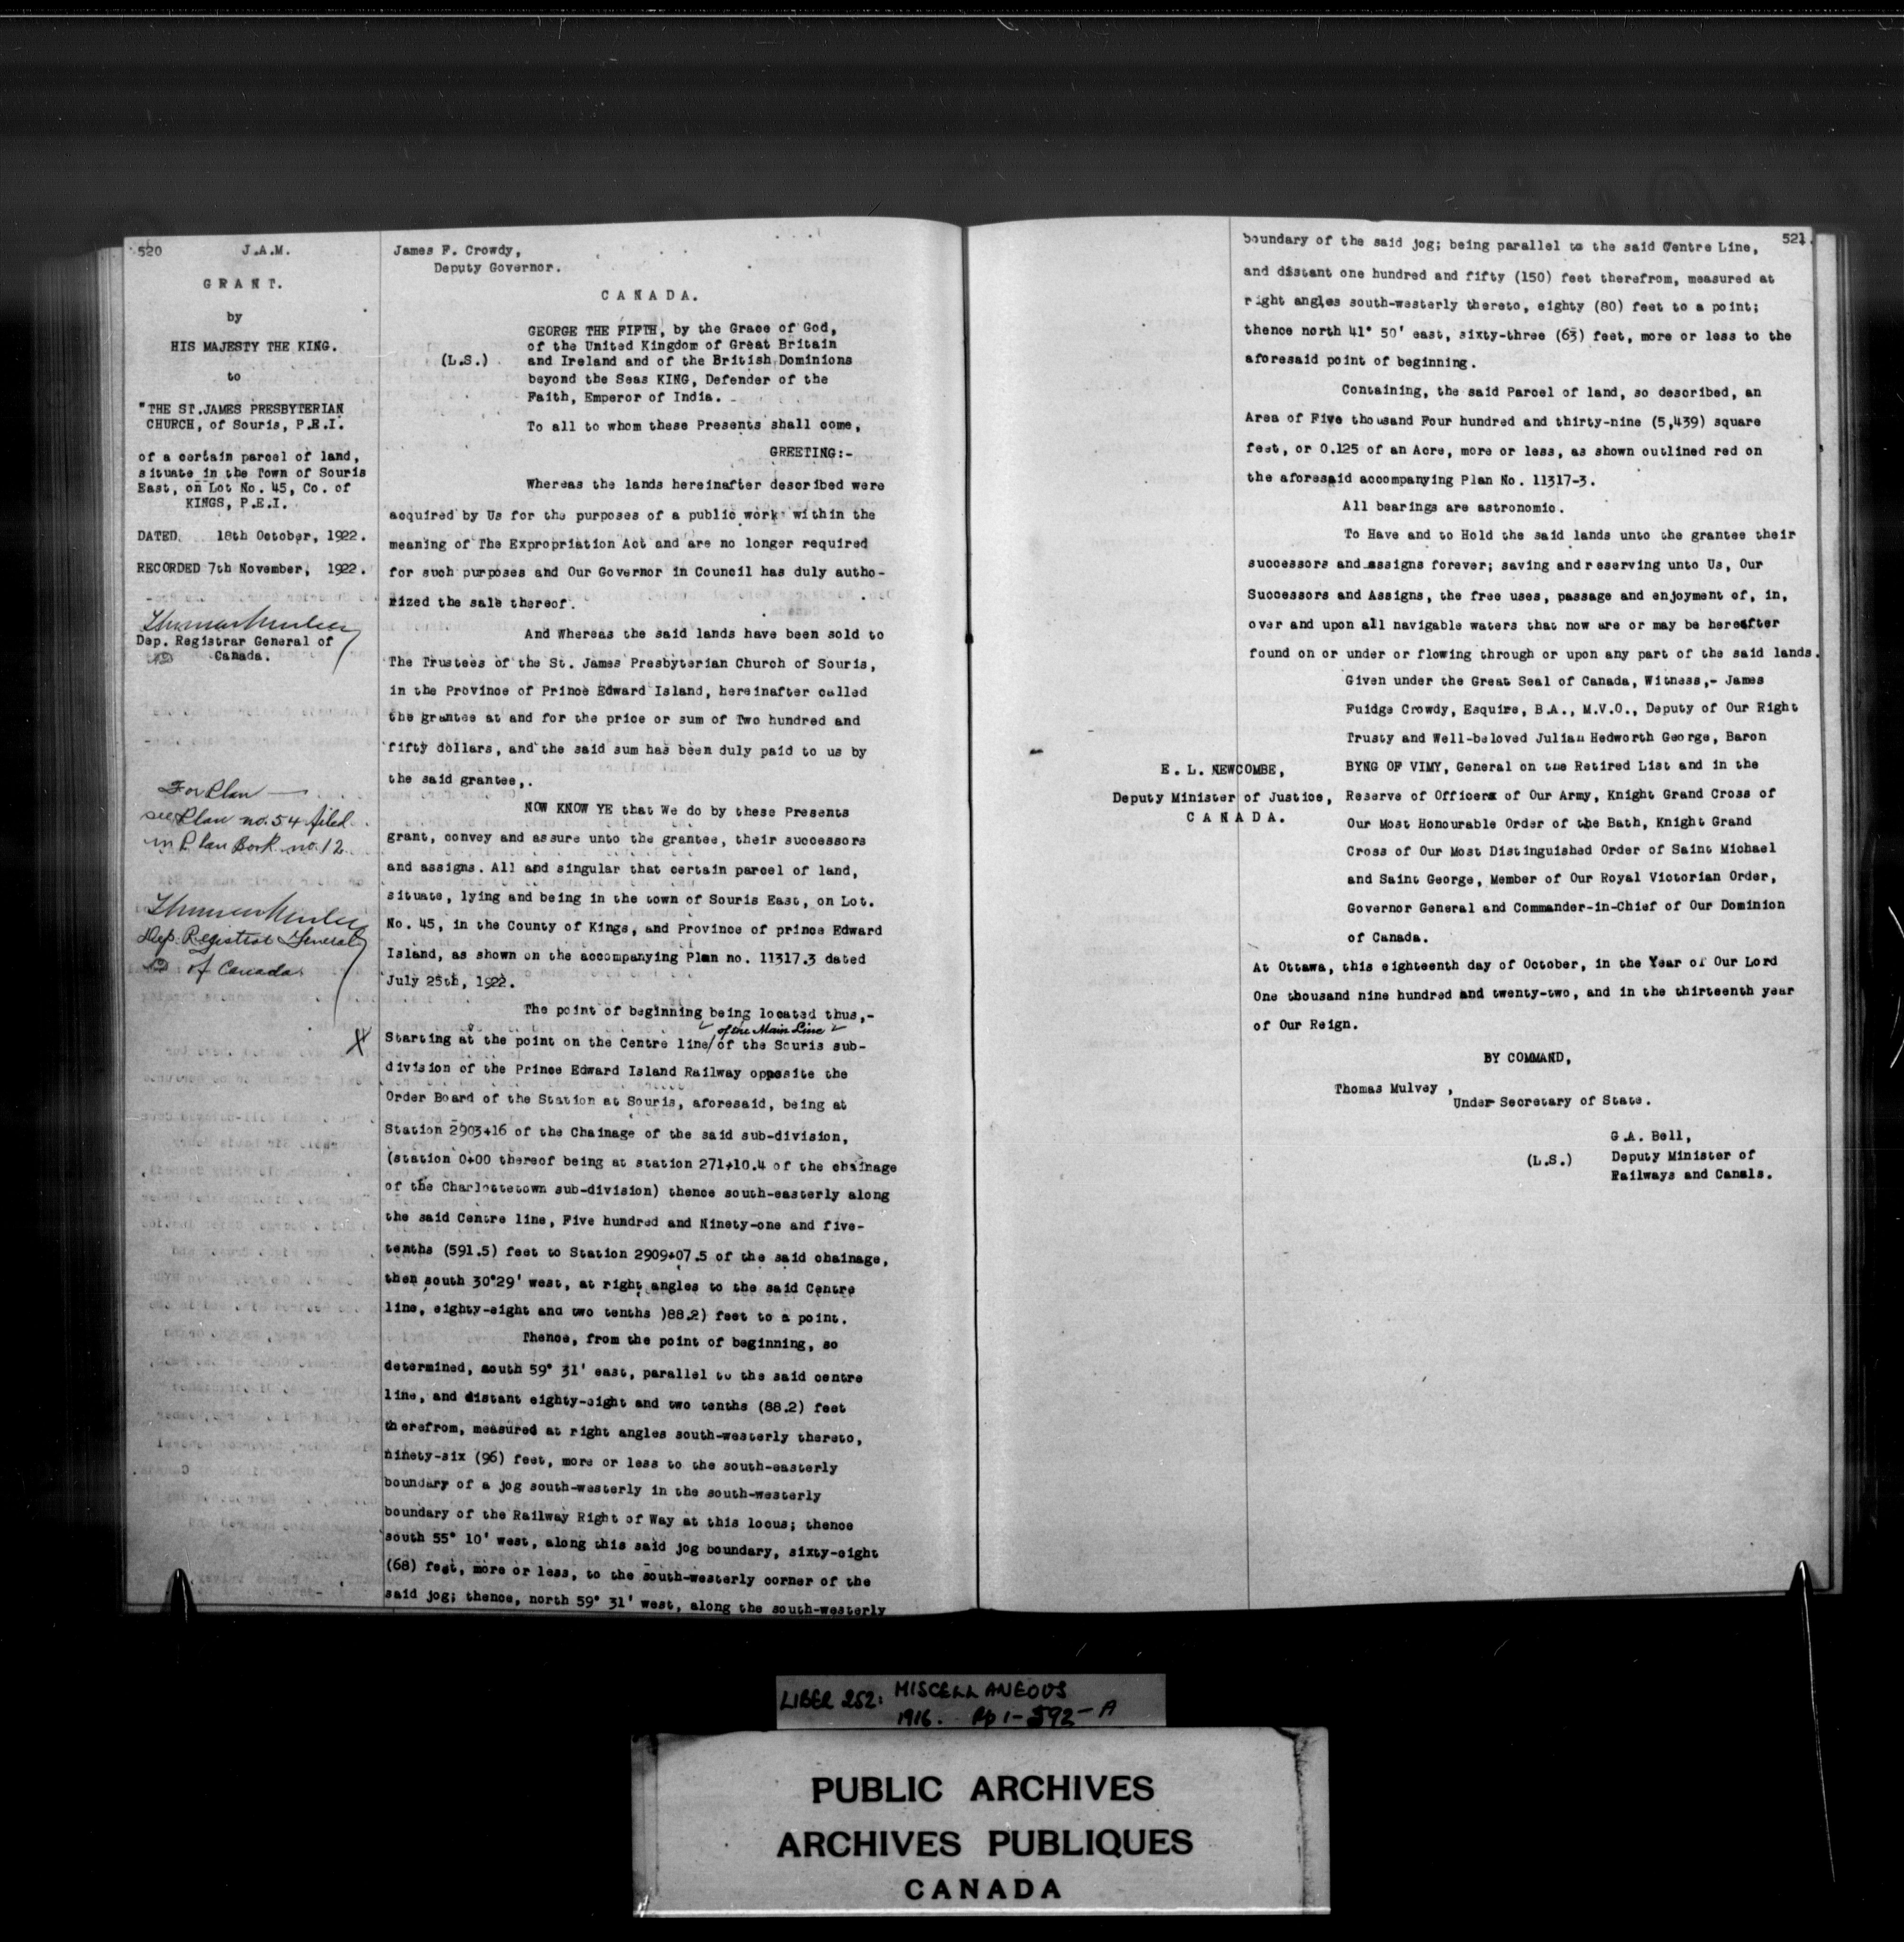 520 J.A.M.
GRANT.
by
HIS MAJESTY THE KING.
to
"THE ST.JAMES PRESBYTERIAN
CHURCH, of Souris, P.E.I.
of a certain parcel of land,
situate in the Town of Souris
East, on Lot No. 45, Co. of
KINGS, P.E.I.
DATED. 18th October, 1922.
RECORDED 7th November, 1922.
Thomas Mulvey
Dep. Registrar General of
Canada.
For Plan —
see Plan no. 54 filed
in Plan Book no. 12
Thomas Mulvey
Dep. Registrar General
of Canada
X
James F. Crowdy,
Deputy Governor.
CANADA.
GEORGE THE FIFTH, by the Grace of God,
of the United Kingdom of Great Britain
(L.S.) and Ireland and of the British Dominions
beyond the Seas KING, Defender of the
Faith, Emperor of India.
To all to whom these Presents shall come,
GREETING:-
Whereas the lands hereinafter described were
acquired by Us for the purposes of a public work within the
meaning of The Expropriation Act and are no longer required
for such purposes and Our Governor in Council has duly autho-
rized the sale thereof.
And Whereas the said lands have been sold to
The Trustees of the St. James Presbyterian Church of Souris,
in the Province of Prince Edward Island, hereinafter called
the grantee at and for the price or sum of Two hundred and
fifty dollars, and the said sum has been duly paid to us by
the said grantee,.
NOW KNOW YE that We do by these Presents
grant, convey and assure unto the grantee, their successors
and assigns. All and singular that certain parcel of land,
situate, lying and being in the town of Souris East, on Lot.
No. 45, in the County of Kings, and Province of prince Edward
Island, as shown on the accompanying Plan no. 11317.3 dated
July 25th, 1922.
The point of beginning being located thus,-
of the Main Line
Starting at the point on the Centre line/of the Souris sub-
division of the Prince Edward Island Railway opposite the
Order Board of the Station at Souris, aforesaid, being at
Station 2903+16 of the Chainage of the said sub-division,
(station 0+00 thereof being at station 271+10.4 of the chainage
of the Charlottetown sub-division) thence south-easterly along
the said Centre line, Five hundred and Ninety-one and five-
tenths (591.5) feet to Station 2909+07.5 of the said chainage,
then south 30°29' west, at right angles to the said Centre
line, eighty-eight and two tenths )88.2) feet to a point.
Thence, from the point of beginning, so
determined, south 59° 31' east, parallel to the said centre
line, and distant eighty-eight and two tenths (88.2) feet
therefrom, measured at right angles south-westerly thereto,
ninety-six (96) feet, more or less to the south-easterly
boundary of a jog south-westerly in the south-westerly
boundary of the Railway Right of Way at this locus; thence
south 55° 10' west, along this said jog boundary, sixty-eight
(68) feet, more or less, to the south-westerly corner of the
said jog; thence, north 59° 31' west, along the south-westerly
521.
boundary of the said jog; being parallel to the said Centre Line,
and distant one hundred and fifty (150) feet therefrom, measured at
right angles south-westerly thereto, eighty (80) feet to a point;
thence north 41° 50' east, sixty-three (63) feet, more or less to the
aforesaid point of beginning.
Containing, the said Parcel of land, so described, an
Area of Five thousand Four hundred and thirty-nine (5,439) square
feet, or 0.125 of an Acre, more or less, as shown outlined red on
the aforesaid accompanying Plan No. 11317-3.
All bearings are astronomic.
To Have and to Hold the said lands unto the grantee their
successors and assigns forever; saving and reserving unto Us, Our
Successors and Assigns, the free uses, passage and enjoyment of, in,
over and upon all navigable waters that now are or may be hereafter
found on or under or flowing through or upon any part of the said lands.
Given under the Great Seal of Canada, Witness,- James
Fuidge Crowdy, Esquire, B.A., M.V.O., Deputy of Our Right
Trusty and Well-beloved Julian Hedworth George, Baron
E. L. NEWCOMBE, BYNG OF VIMY, General on the Retired List and in the
Deputy Minister of Justice, Reserve of Officers of Our Army, Knight Grand Cross of
CANADA. Our Most Honourable Order of the Bath, Knight Grand
Cross of Our Most Distinguished Order of Saint Michael
and Saint George, Member of Our Royal Victorian Order,
Governor General and Commander-in-Chief of Our Dominion
of Canada.
At Ottawa, this eighteenth day of October, in the Year of Our Lord
One thousand nine hundred and twenty-two, and in the thirteenth year
of Our Reign.
BY COMMAND,
Thomas Mulvey ,
Under Secretary of State.
G.A. Bell,
(L.S.) Deputy Minister of
Railways and Canals.
LIBER 252: MISCELLANEOUS
1916. Pp 1-592-A
PUBLIC ARCHIVES
ARCHIVES PUBLIQUES
CANADA